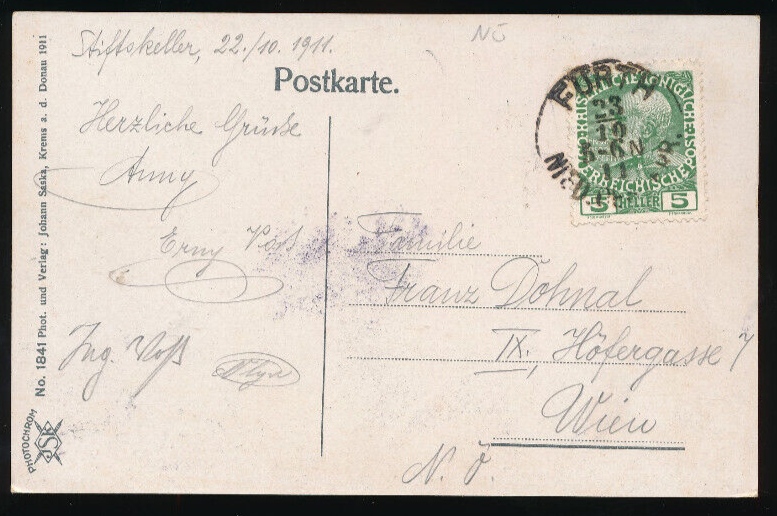 NÖ
Stiftskeller, 22./10. 1911.
Postkarte.
Herzliche Grüße
Anny
Erny Voß
Ing. Voß
Familie
Franz Dohnal
IX., Höfergasse 7
Wien
N. Ö.
FURTH
23
10
11
5
HELLER
5
No. 1841 Phot. und Verlag: Johann Saska, Krems a. d. Donau 1911
PHOTOCHROM